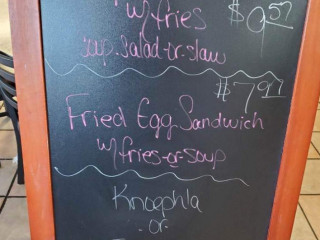 w/ fries $9.59
soup, salad-or-slaw
$7.99
Fried Egg Sandwich
w/ fries-or-soup
Knoephla
-or-